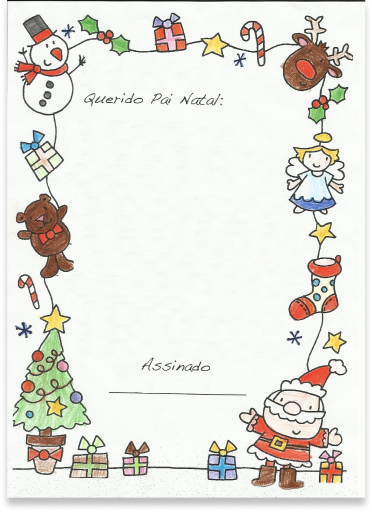 Querido Pai Natal:
Assinado